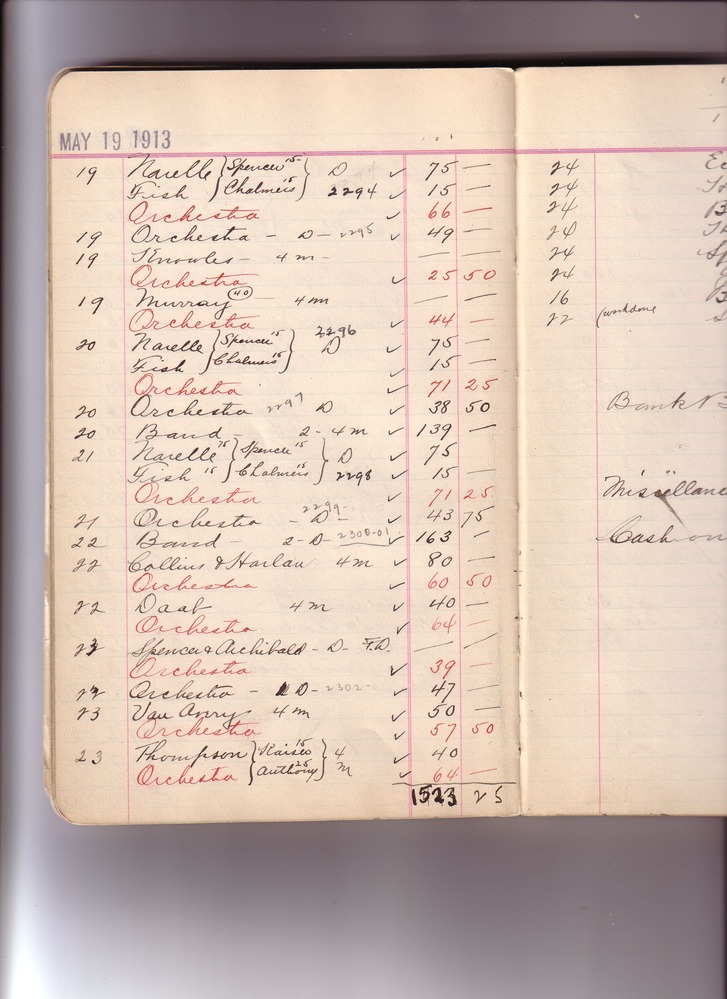 MAY 19 1913
19 Narelle } Spencer 15 } D ✓ 75 —
Fish } Chalmers 15 } 2294 ✓ 15 —
Orchestra ✓ 66 —
19 Orchestra - D - 2295 ✓ 49 —
19 Knowles - 4 m - — —
Orchestra ✓ 25 50
19 Murray (40) - 4 m — —
Orchestra ✓ 44 —
20 Narelle } Spencer 15 } 2296 D ✓ 75 —
Fish } Chalmers 15 } ✓ 15 —
Orchestra ✓ 71 25
20 Orchestra 2297 D ✓ 38 50
20 Band - 2 - 4 m ✓ 139 —
21 Narelle 75 } Spencer 15 } D ✓ 75
Fish 15 } Chalmers 15 } 2298 ✓ 15 —
Orchestra ✓ 71 25
21 Orchestra - D - 2299 - ✓ 43 75
22 Band - 2 - D - 2300-01 ✓ 163 -
22 Collins & Harlan 4 m ✓ 80 —
Orchestra ✓ 60 50
22 Daab 4 m ✓ 40 —
Orchestra ✓ 64 —
Spencer & Archibald - D - F.D. — —
Orchestra ✓ 39 —
Orchestra - D - 2302 - ✓ 47 —
23 Van Avery 4 m ✓ 50 —
Orchestra ✓ 57 50
23 Thompson } 15 } 4 ✓ 40
Orchestra } Anthony 25 } m ✓ 64 —
1523 25
24
24
24
24
24
24
16
22 (work done
Bank B
Miscellane
Cash on